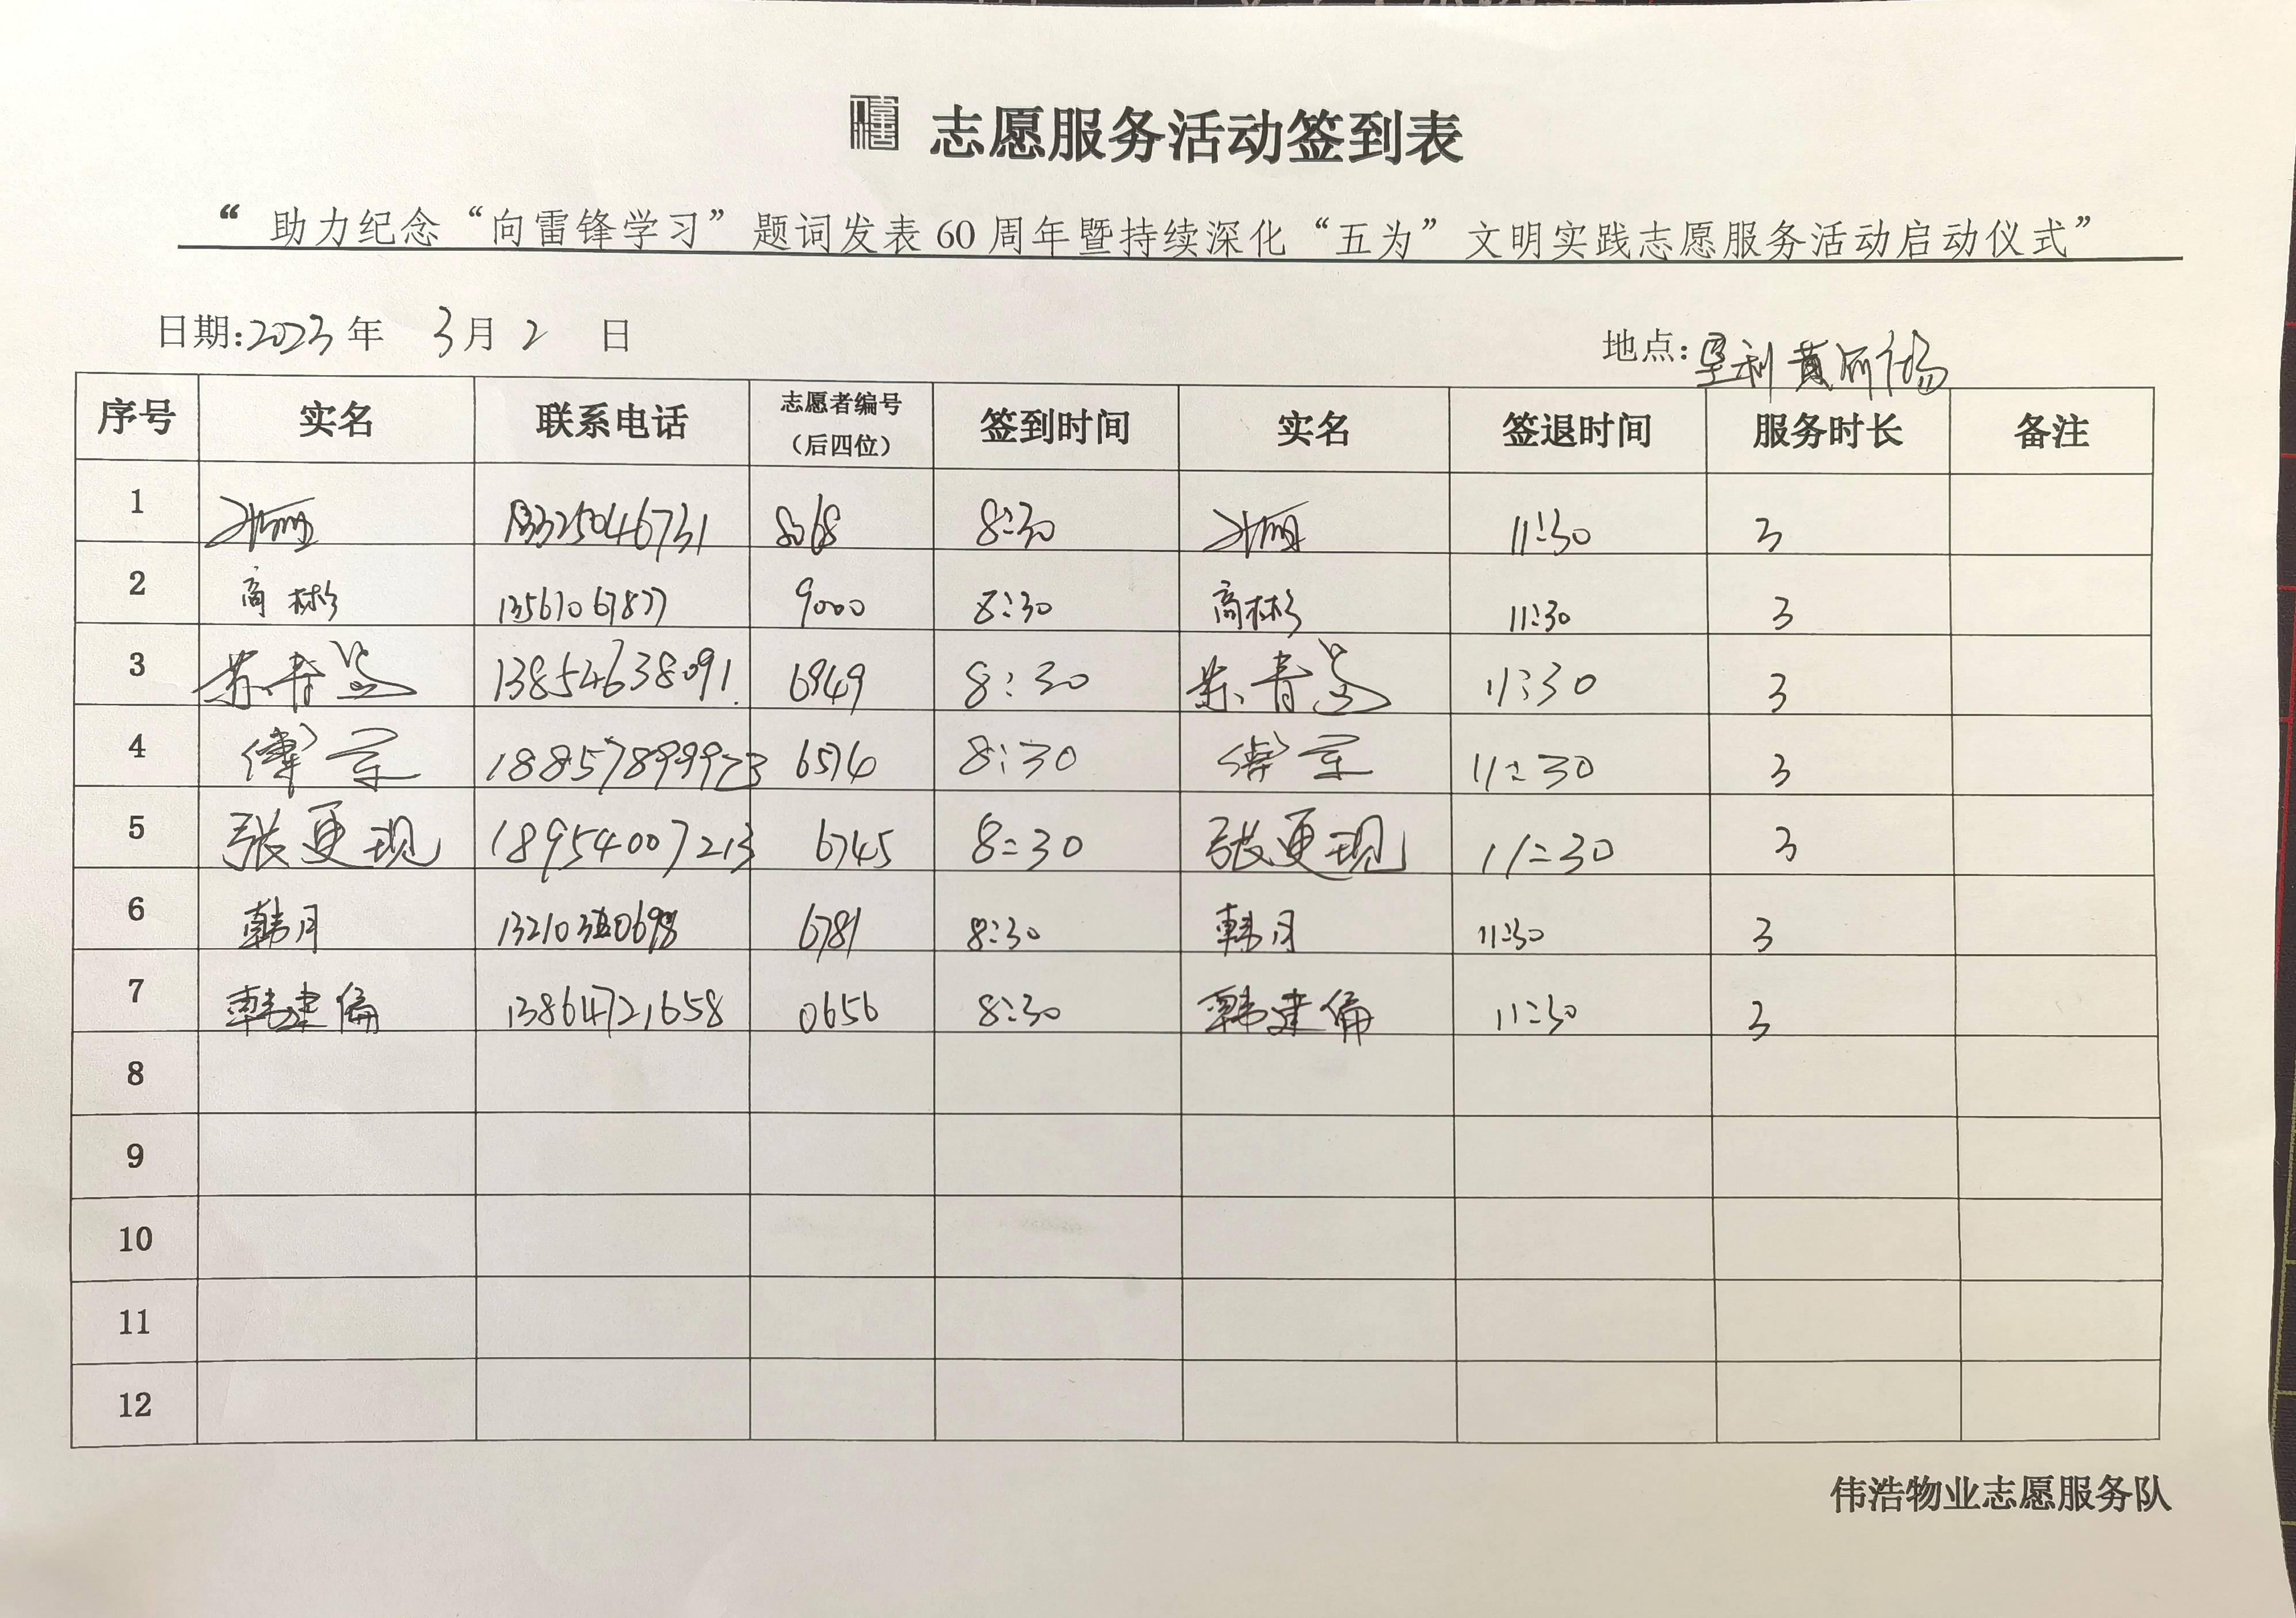 志愿服务活动签到表
“ 助力纪念“向雷锋学习”题词发表 60 周年暨持续深化“五为”文明实践志愿服务活动启动仪式”
日期:2023 年 3 月 2 日 地点:垦利黄河广场
序号 实名 联系电话 志愿者编号（后四位） 签到时间 实名 签退时间 服务时长 备注
1 13325046731 8068 8:30 11:30 3
2 商彬 13561067877 9000 8:30 商彬 11:30 3
3 苏青 13854638091. 6949 8:30 苏青 11:30 3
4 6574 8:30 11:30 3
5 张更现 18954007213 6745 8:30 张更现 11:30 3
6 韩月 6781 8:30 韩月 11:30 3
7 韩建偏 13864721658 0656 8:30 韩建偏 11:30 3
8
9
10
11
12
伟浩物业志愿服务队